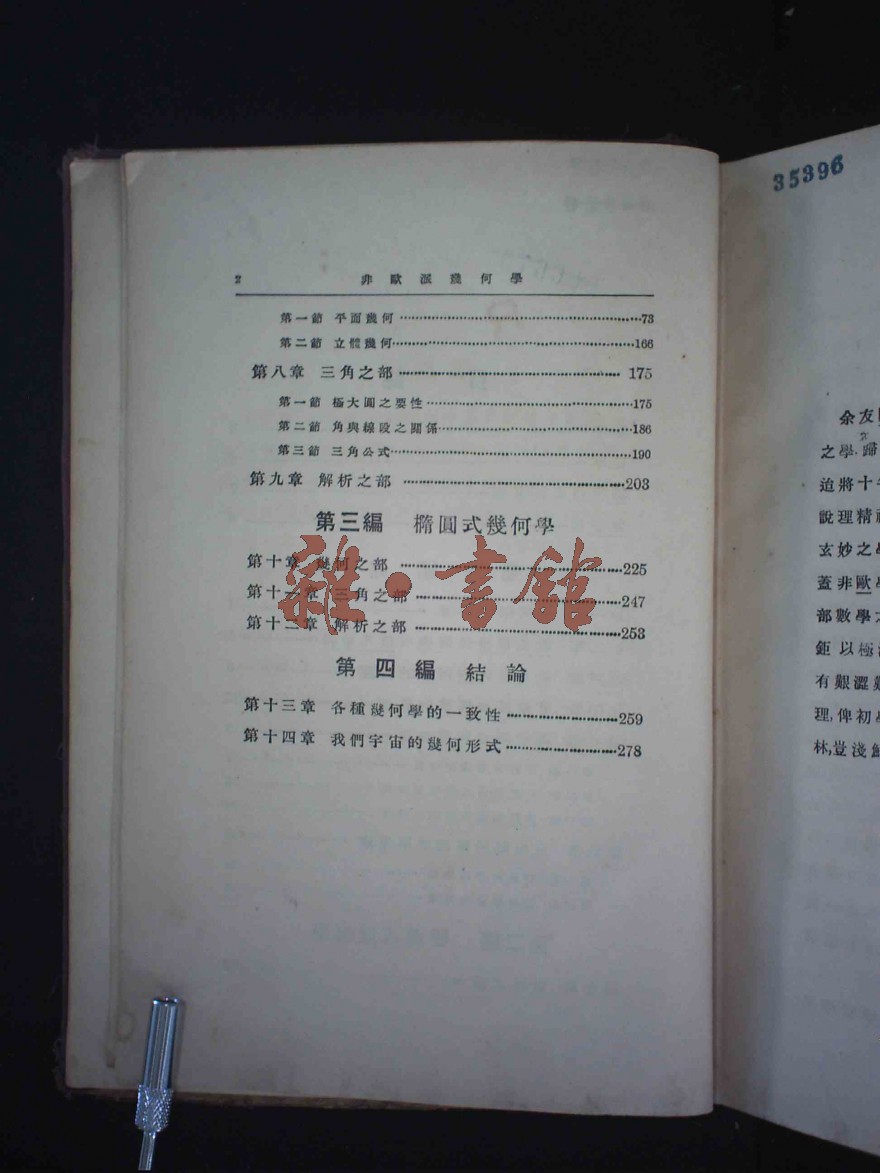 2 非歐派幾何學
第一節 平面幾何 ……73
第二節 立體幾何……166
第八章 三角之部 …… 175
第一節 極大圓之要性……175
第二節 角與線段之關係……186
第三節 三角公式……190
第九章 解析之部 ……203
第三編 橢圓式幾何學
第十章 幾何之部 ……225
第十一章 三角之部 ……247
第十二章 解析之部 ……253
第四編 結論
第十三章 各種幾何學的一致性……259
第十四章 我們宇宙的幾何形式……278
雜·書館
35396
余友
之學,歸
迫將十
說理精
玄妙之
蓋非歐
部數學
鉅以極
有艱澀
理,俾初
林,豈淺